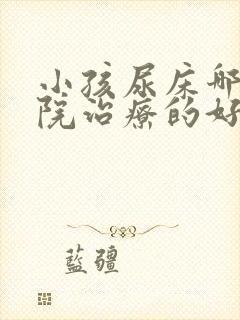 小孩尿床哪
院治療的好
藍疆